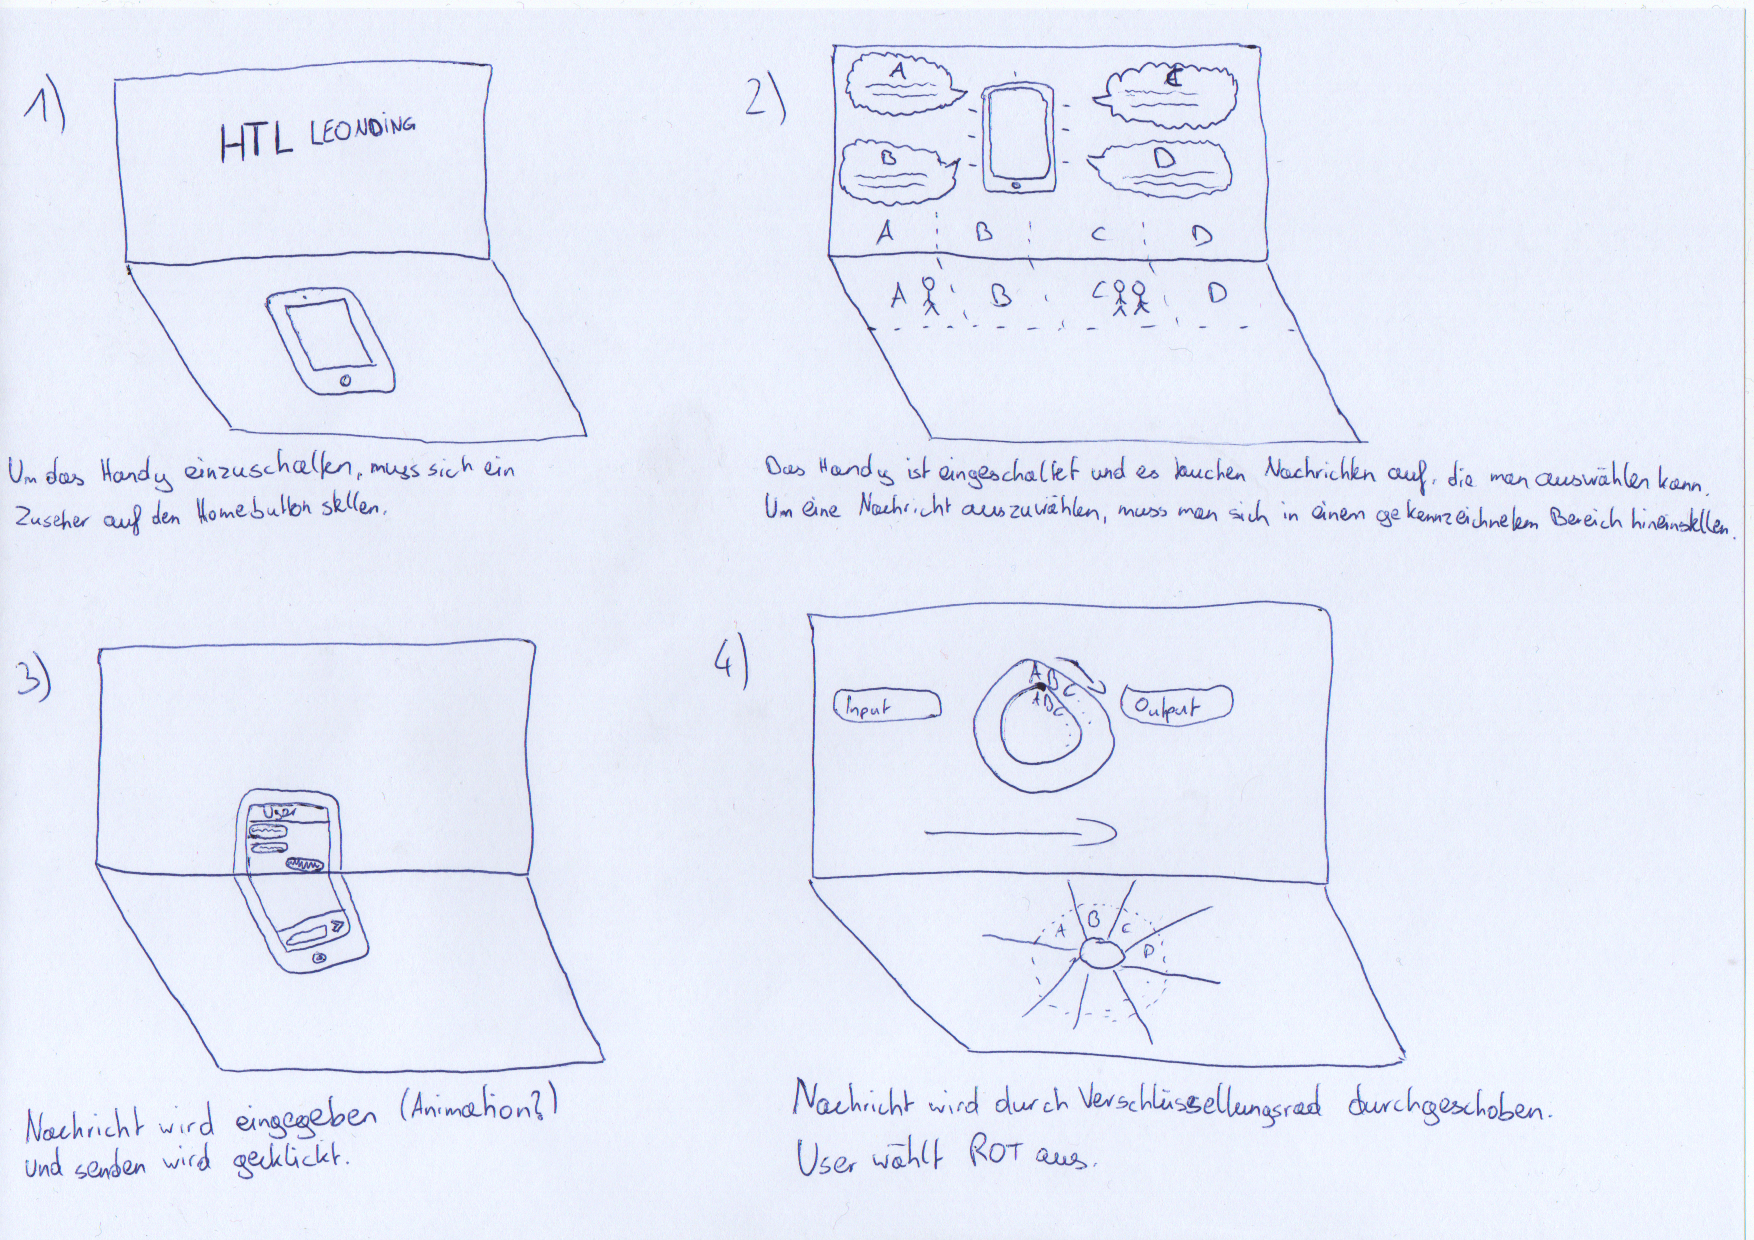 1)
HTL LEONDING
Um das Handy einzuschalten, muss sich ein
Zuseher auf den Homebutton stellen.
2)
A
C
B
D
A B C D
A B C D
Das Handy ist eingeschaltet und es tauchen Nachrichten auf, die man auswählen kann.
Um eine Nachricht auszuwählen, muss man sich in einem gekennzeichnetem Bereich hineinstellen.
3)
User
Nachricht wird eingegeben (Animation?)
und senden wird geklickt.
4)
Input
A B C
A B C
Output
A B C D
Nachricht wird durch Verschlüsselungsrad durchgeschoben.
User wählt ROT aus.